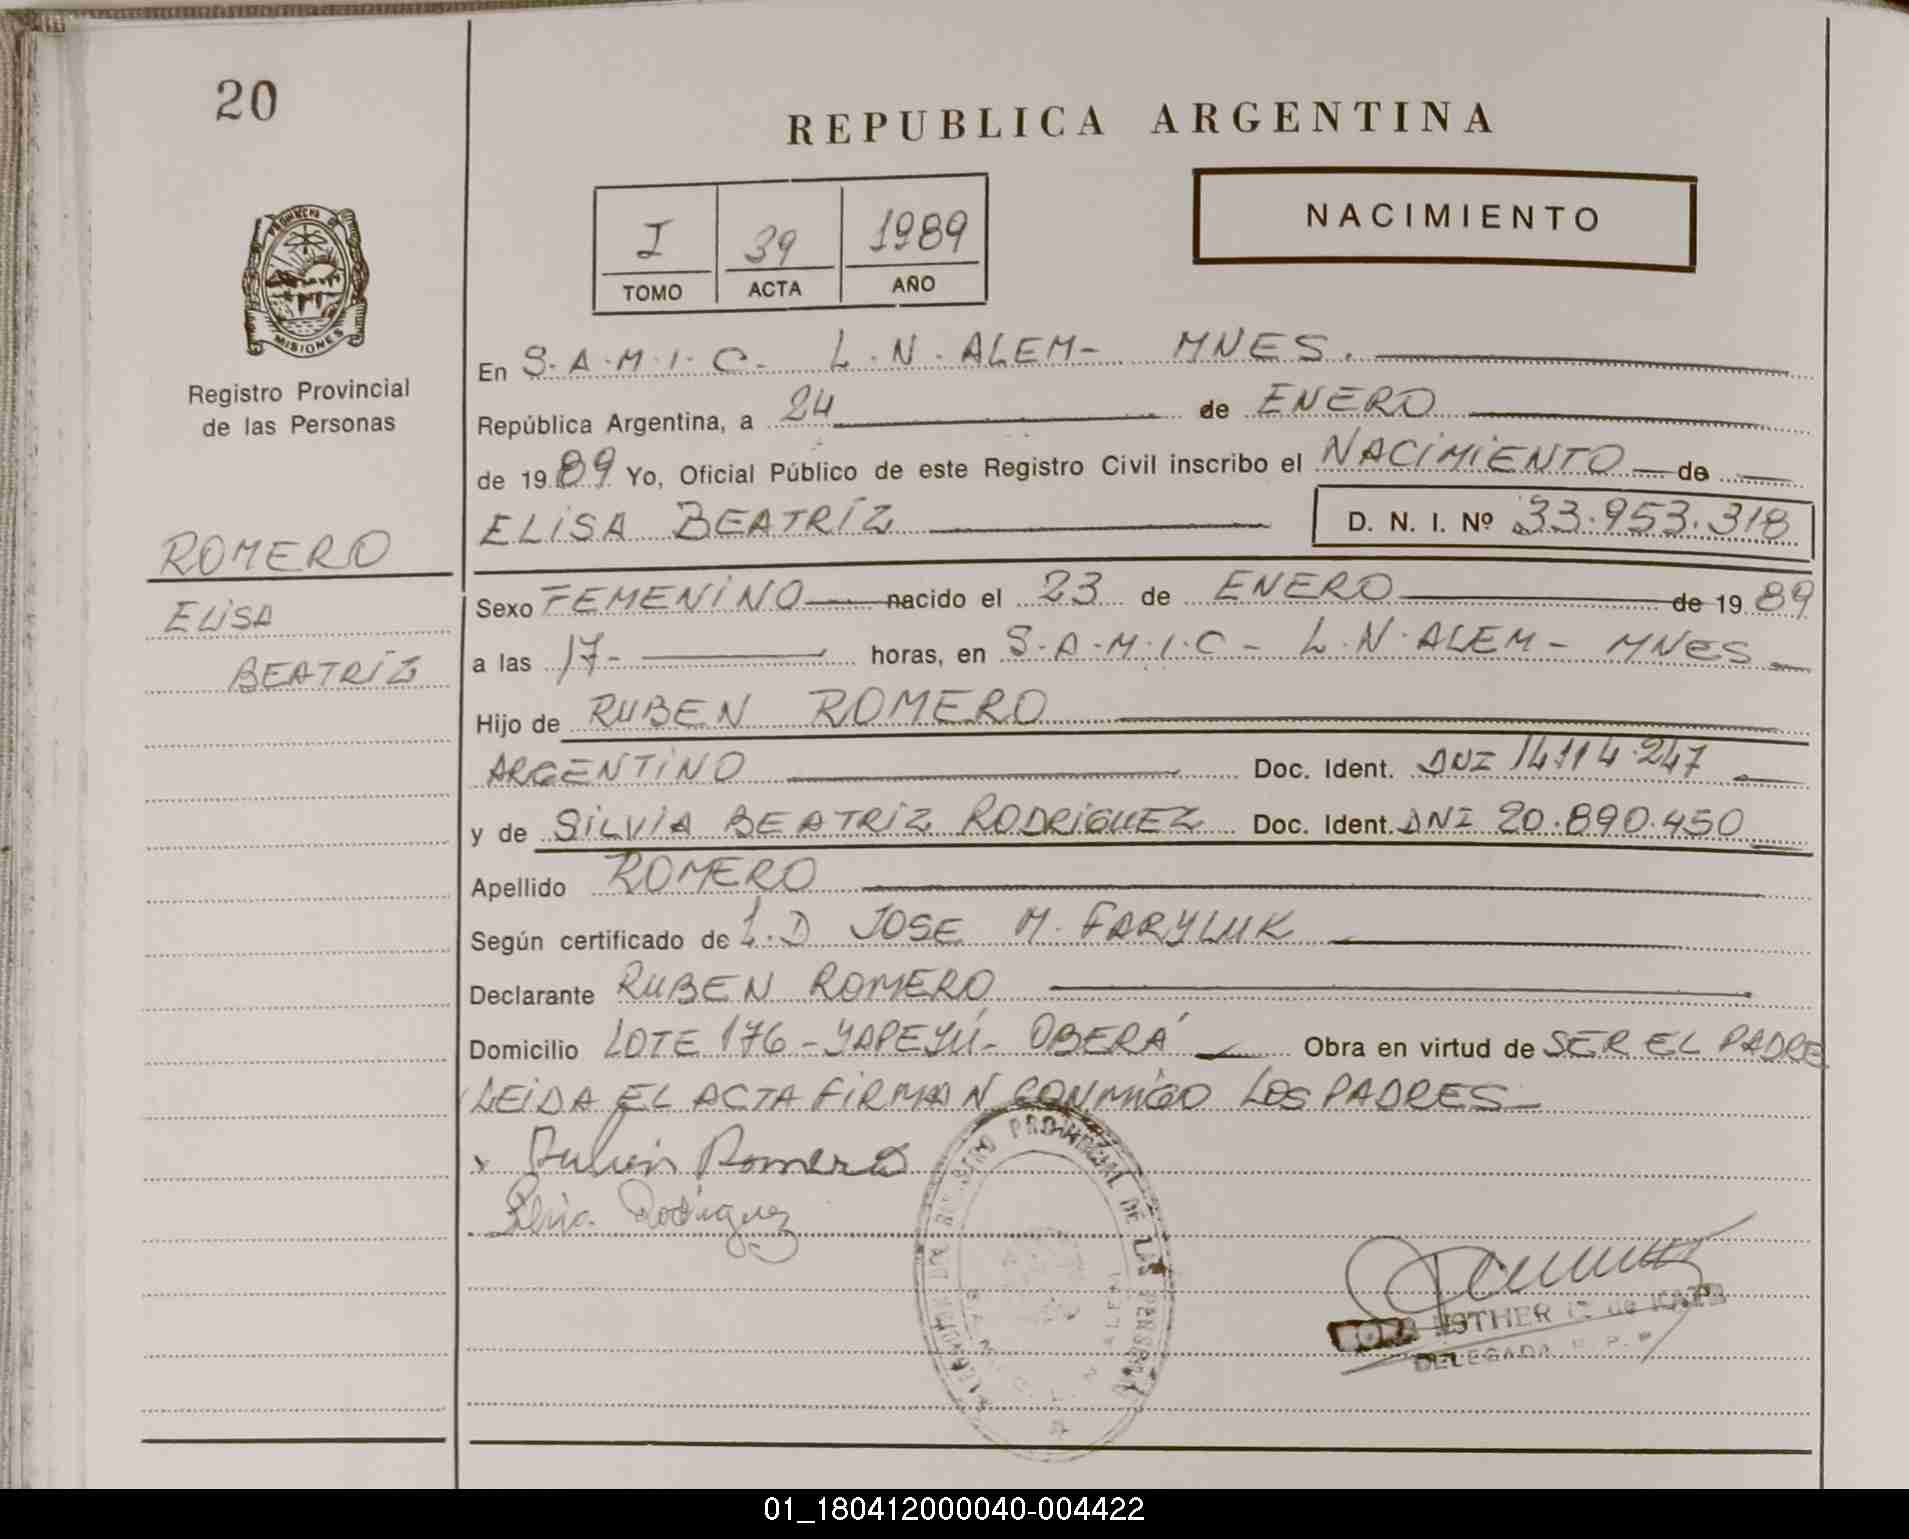 20
REPUBLICA ARGENTINA
NACIMIENTO
I 39 1989
TOMO ACTA AÑO
PROVINCIA DE
MISIONES
Registro Provincial
de las Personas
En S.A.M.I.C- L.N.ALEM- MNES.
República Argentina, a 24 de ENERO
de 1989 Yo, Oficial Público de este Registro Civil inscribo el NACIMIENTO de
ELISA BEATRÍZ D. N. I. Nº 33.953.318
ROMERO
ELISA
BEATRÍZ
Sexo FEMENINO nacido el 23 de ENERO de 1989
a las 17- horas, en S.A.M.I.C- L.N.ALEM- MNES
Hijo de RUBEN ROMERO
ARGENTINO Doc. Ident. DNI 14.114.247
y de SILVIA BEATRIZ RODRIGUEZ Doc. Ident. DNI 20.890.450
Apellido ROMERO
Según certificado de JOSE M. FARYLUK
Declarante RUBEN ROMERO
Domicilio LOTE 176-YAPEYÚ- OBERÁ Obra en virtud de SER EL PADRE
LEIDA EL ACTA FIRMAN CONMIGO LOS PADRES-
Ruben Romero
Silvia Rodriguez
REGISTRO PROVINCIAL DE LAS PERSONAS
ESTHER de
DELEGADA
01_180412000040-004422